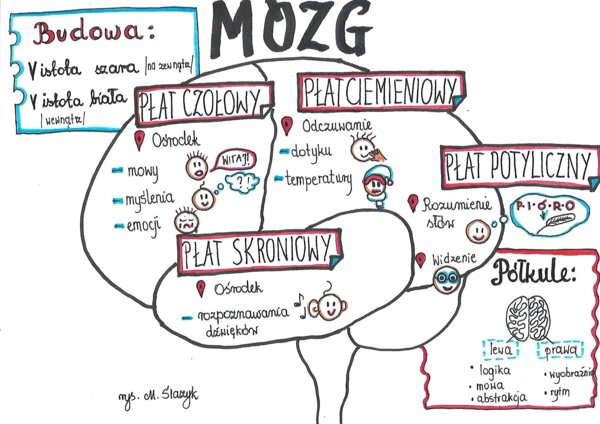 MÓZG
Budowa:
istota szara /na zewnątrz/
istota biała
/wewnątrz/
PŁAT CZOŁOWY
Ośrodek
- mowy
- myślenia
- emocji
WITAJ!
?!
PŁAT CIEMIENIOWY
Odczuwanie
- dotyku
- temperatury
PŁAT POTYLICZNY
Rozumienie
słów
P·I·Ó·R·O
Widzenie
PŁAT SKRONIOWY
Ośrodek
- rozpoznawania
dźwięków
Półkule:
lewa
• logika
• mowa
• abstrakcja
prawa
• wyobraźnia
• rytm
rys. M. Ślazyk